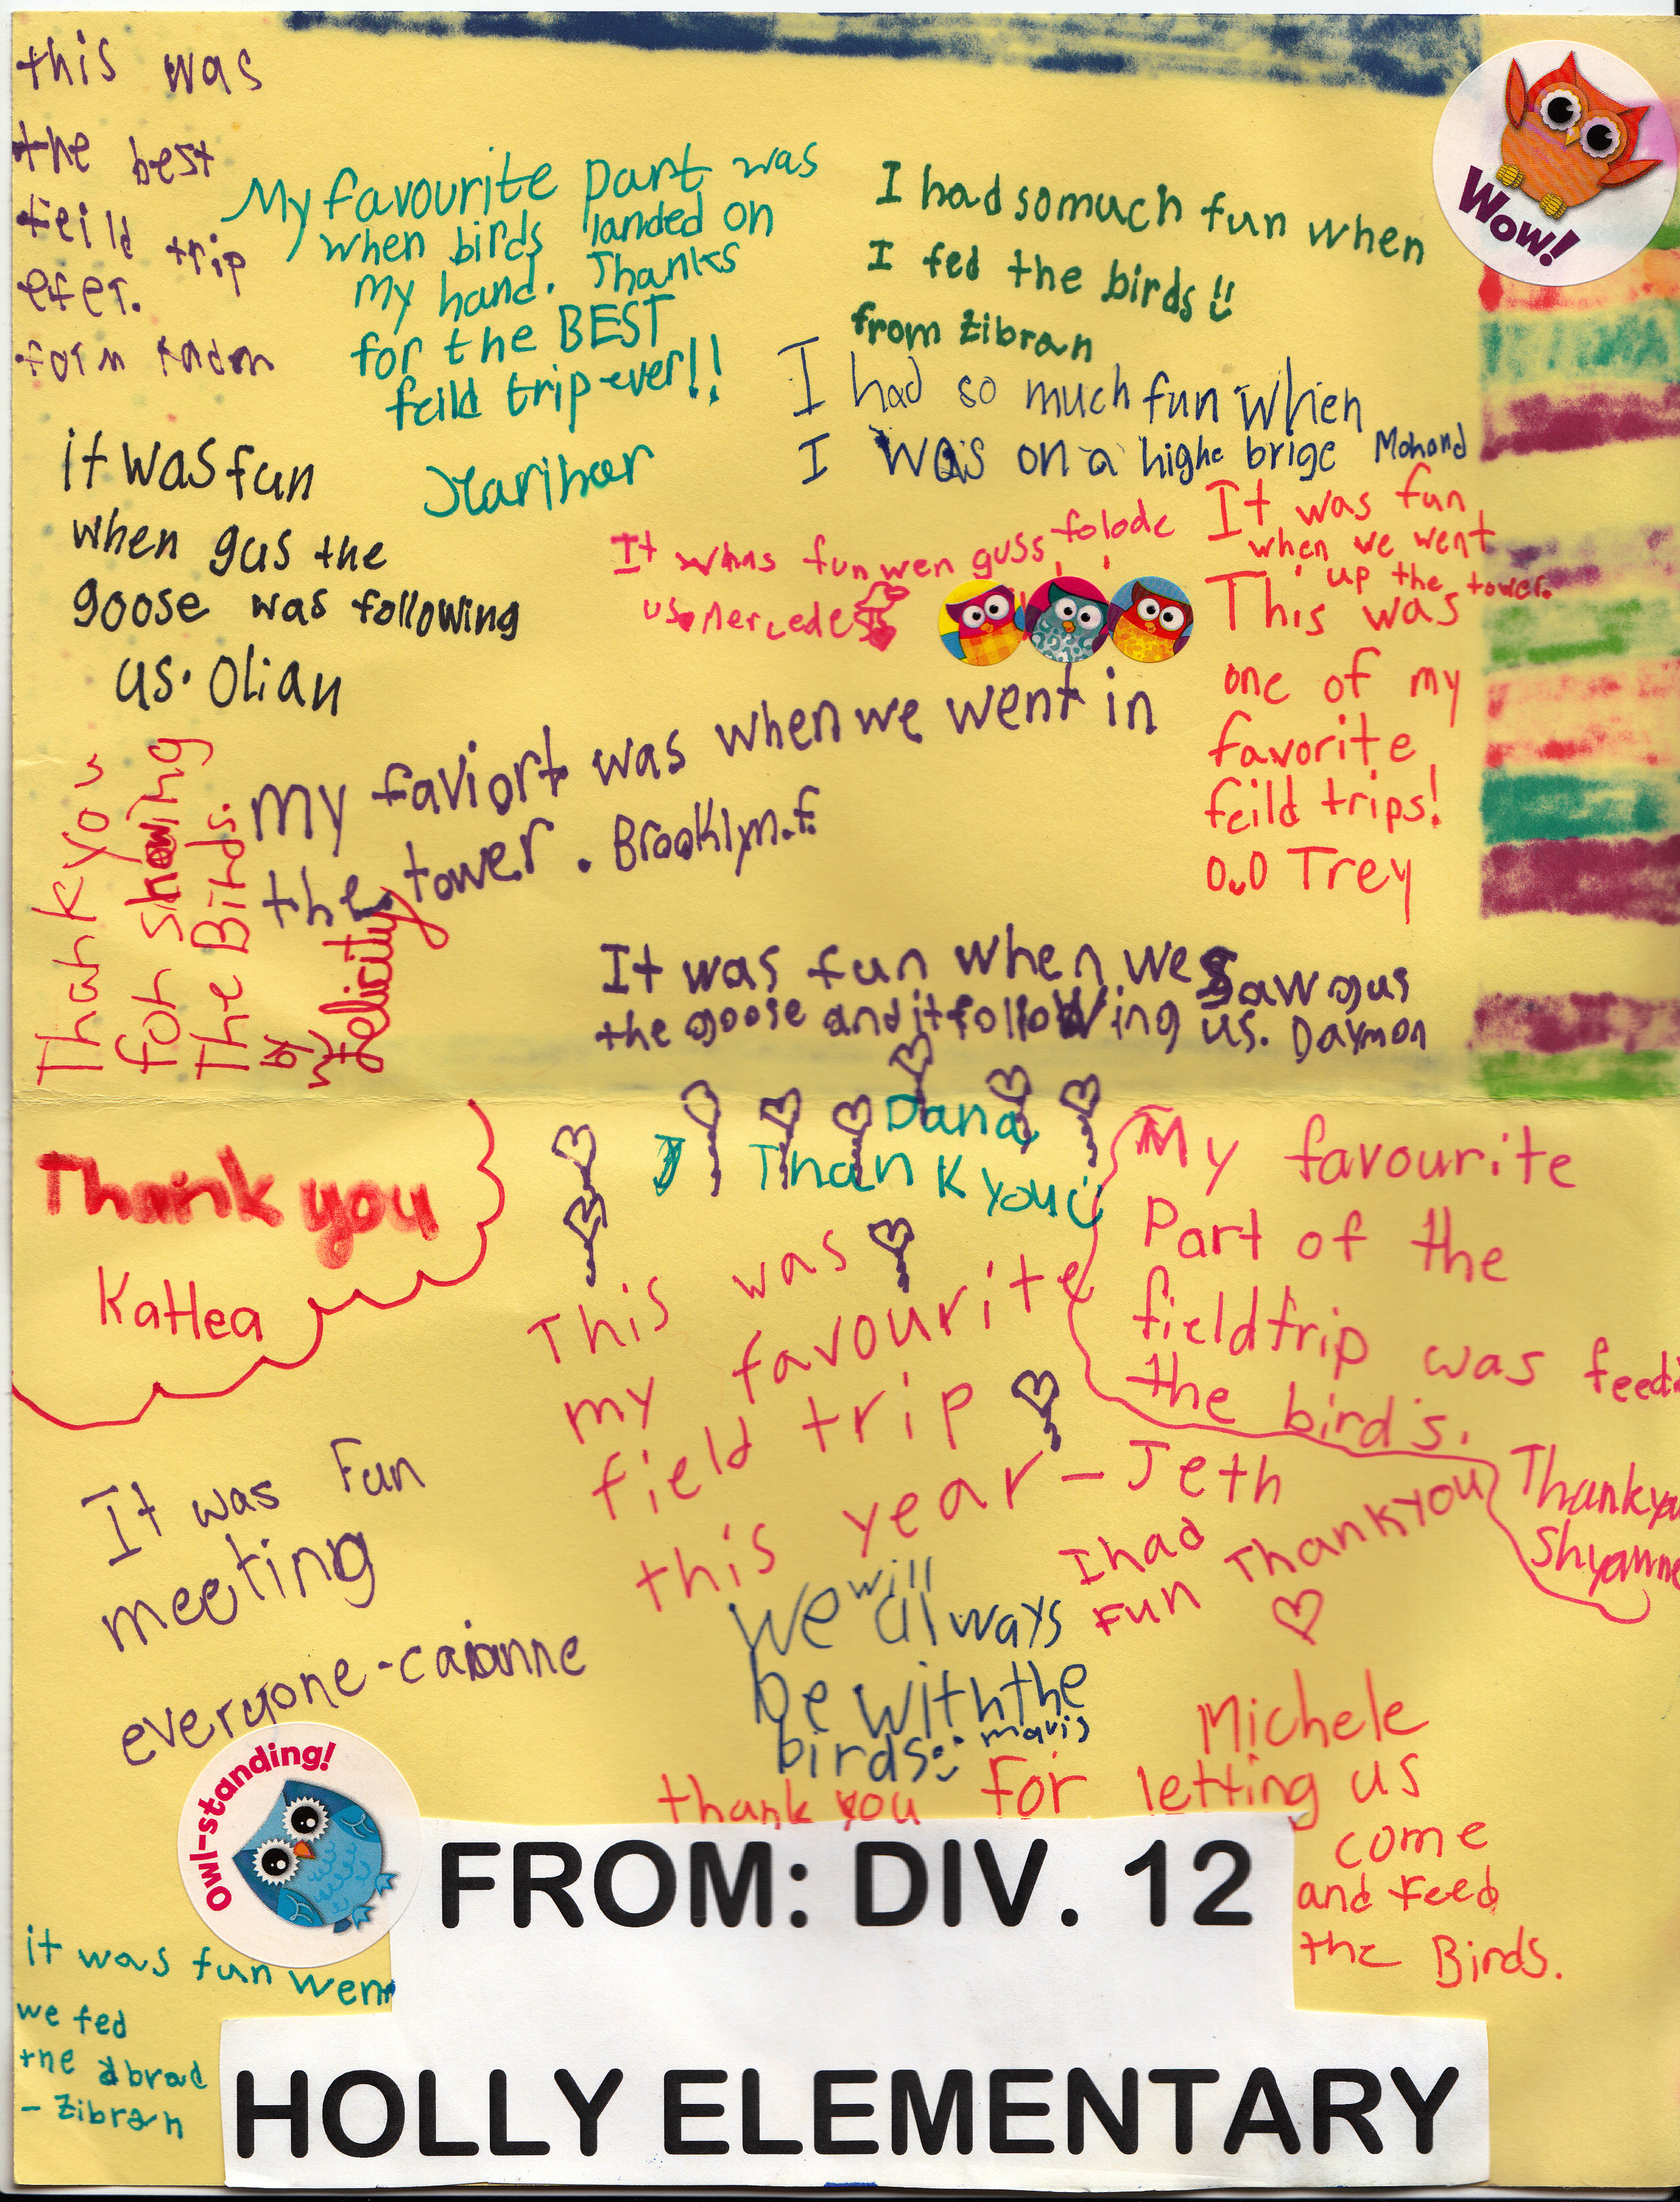 this was
the best
feild trip
efer.
My favourite part was
when birds landed on
my hand. Thanks
for the BEST
feild trip ever!!
I had somuch fun when
I fed the birds!!
from Zibran
Wow!
I had so much fun when
I was on a highe brige Mohand
it was fun
when gus the
goose was following
us. Olian
It whas fun wen guss folode
us. Mercedes
It was fun
when we went
up the tower.
This was
one of my
favorite
feild trips!
O.O Trey
my faviort was when we went in
the tower. Brooklyn.f
Thank you
for showing
The Birds.
by
Felicity
It was fun when we saw gus
the goose and it following us. Daymon
Thank you
Katlea
Dana
Thank you
This was
my favourite
field trip
this year - Jeth
My favourite
Part of the
fieldtrip was feedi
the bird's.
Thankyou
Shyanne
It was Fun
meeting
everyone - caianne
I had
Fun
Thankyou
we will always
be with the
birds mavis
Michele
thank you for letting us
come
and Feed
the Birds.
Owl-standing!
FROM: DIV. 12
HOLLY ELEMENTARY
it was fun wen
we fed
the
- Zibran